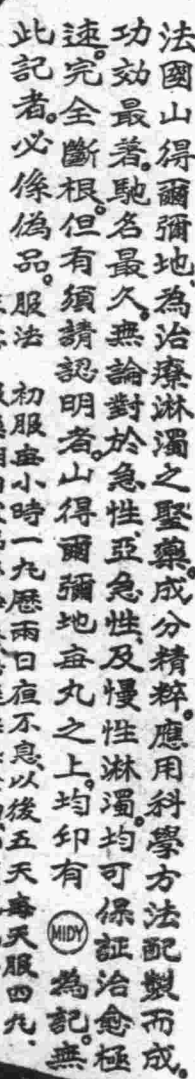 法國山得爾彌地、為治療淋濁之聖藥。成分精粹。應用科學方法配製而成。
功效最著。馳名最久。無論對於急性、亞急性、及慢性淋濁。均可保証治愈極
速。完全斷根。但有須請認明者。山得爾彌地每丸之上。均印有MIDY為記。無
此記者。必係偽品。服法 初服每小時一丸歷兩日夜不息、以後五天每天服四丸、